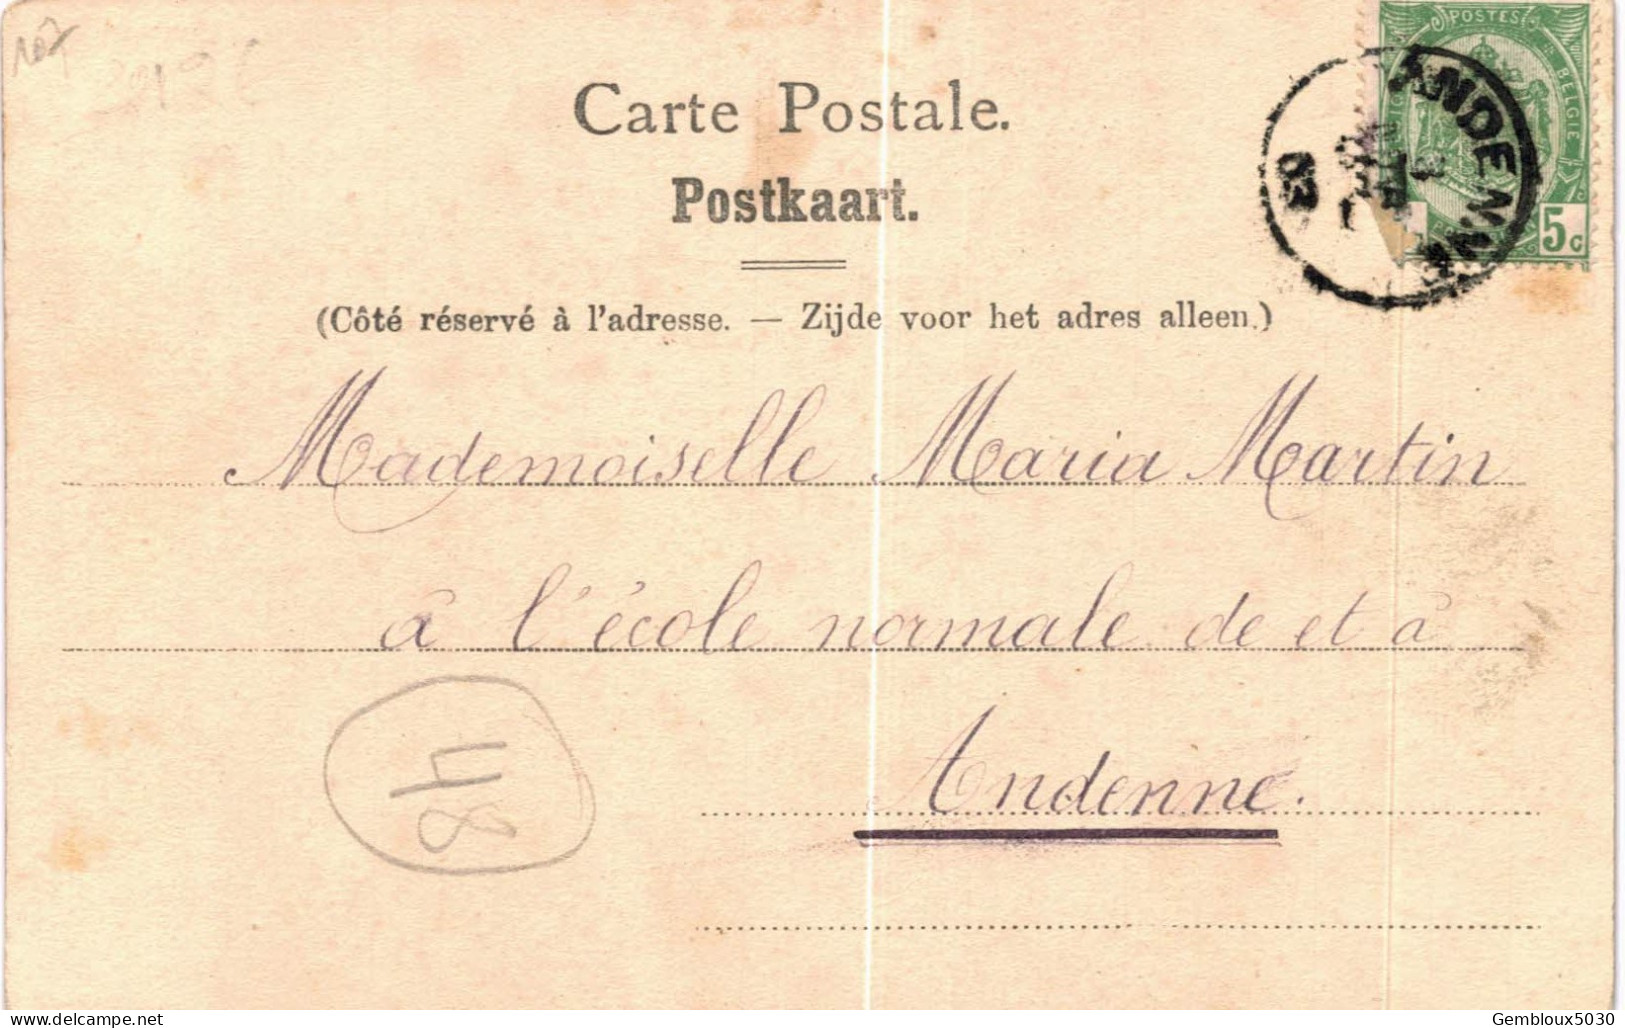 POSTES
BELGIQUE
BELGIE
5c
ANDENNE
03
Carte Postale.
Postkaart.
(Côté réservé à l'adresse. — Zijde voor het adres alleen.)
Mademoiselle Maria Martin
à l'école normale de et à
Andenne.
48
www.delcampe.net
Gembloux5030